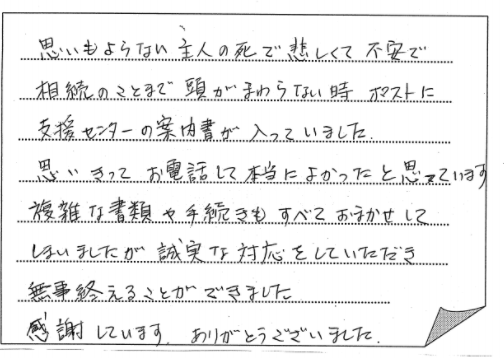 思いもよらない主人の死で悲しくて不安で
相続のことまで頭がまわらない時ポストに
支援センターの案内書が入っていました.
思いきってお電話して本当によかったと思っています
複雑な書類や手続きもすべておまかせして
しまいましたが誠実な対応をしていただき
無事終えることができました
感謝しています. ありがとうございました.